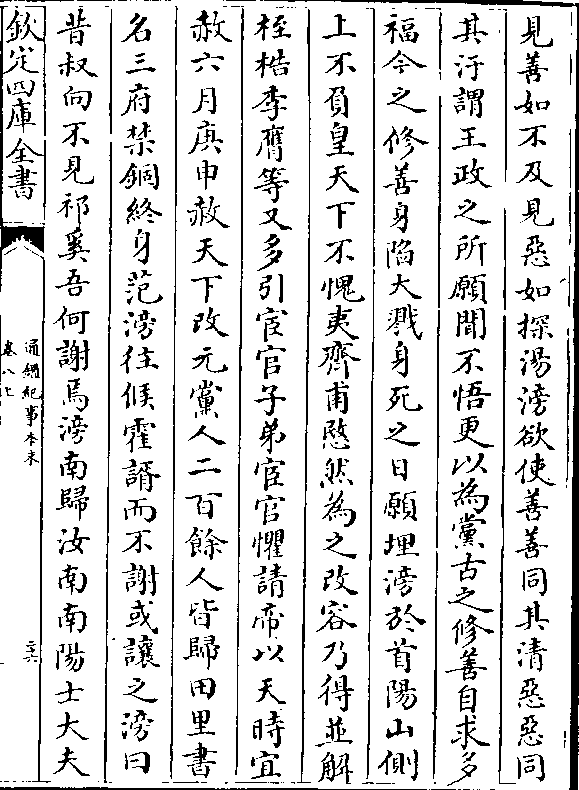 見善如不及見惡如探湯滂欲使善善同其清惡惡同
其汙謂王政之所願聞不悟更以為黨古之修善自求多
福今之修善身陷大戮身死之日願埋滂於首陽山側
上不負皇天下不愧夷齊甫愍然為之改容乃得並解
桎梏李膺等又多引宦官子弟宦官懼請帝以天時宜
赦六月庚申赦天下改元黨人二百餘人皆歸田里書
名三府禁錮終身范滂往候霍諝而不謝或讓之滂曰
昔叔向不見祁奚吾何謝焉滂南歸汝南南陽士大夫
欽定四庫全書
通鑑紀事本末
卷八上
二六